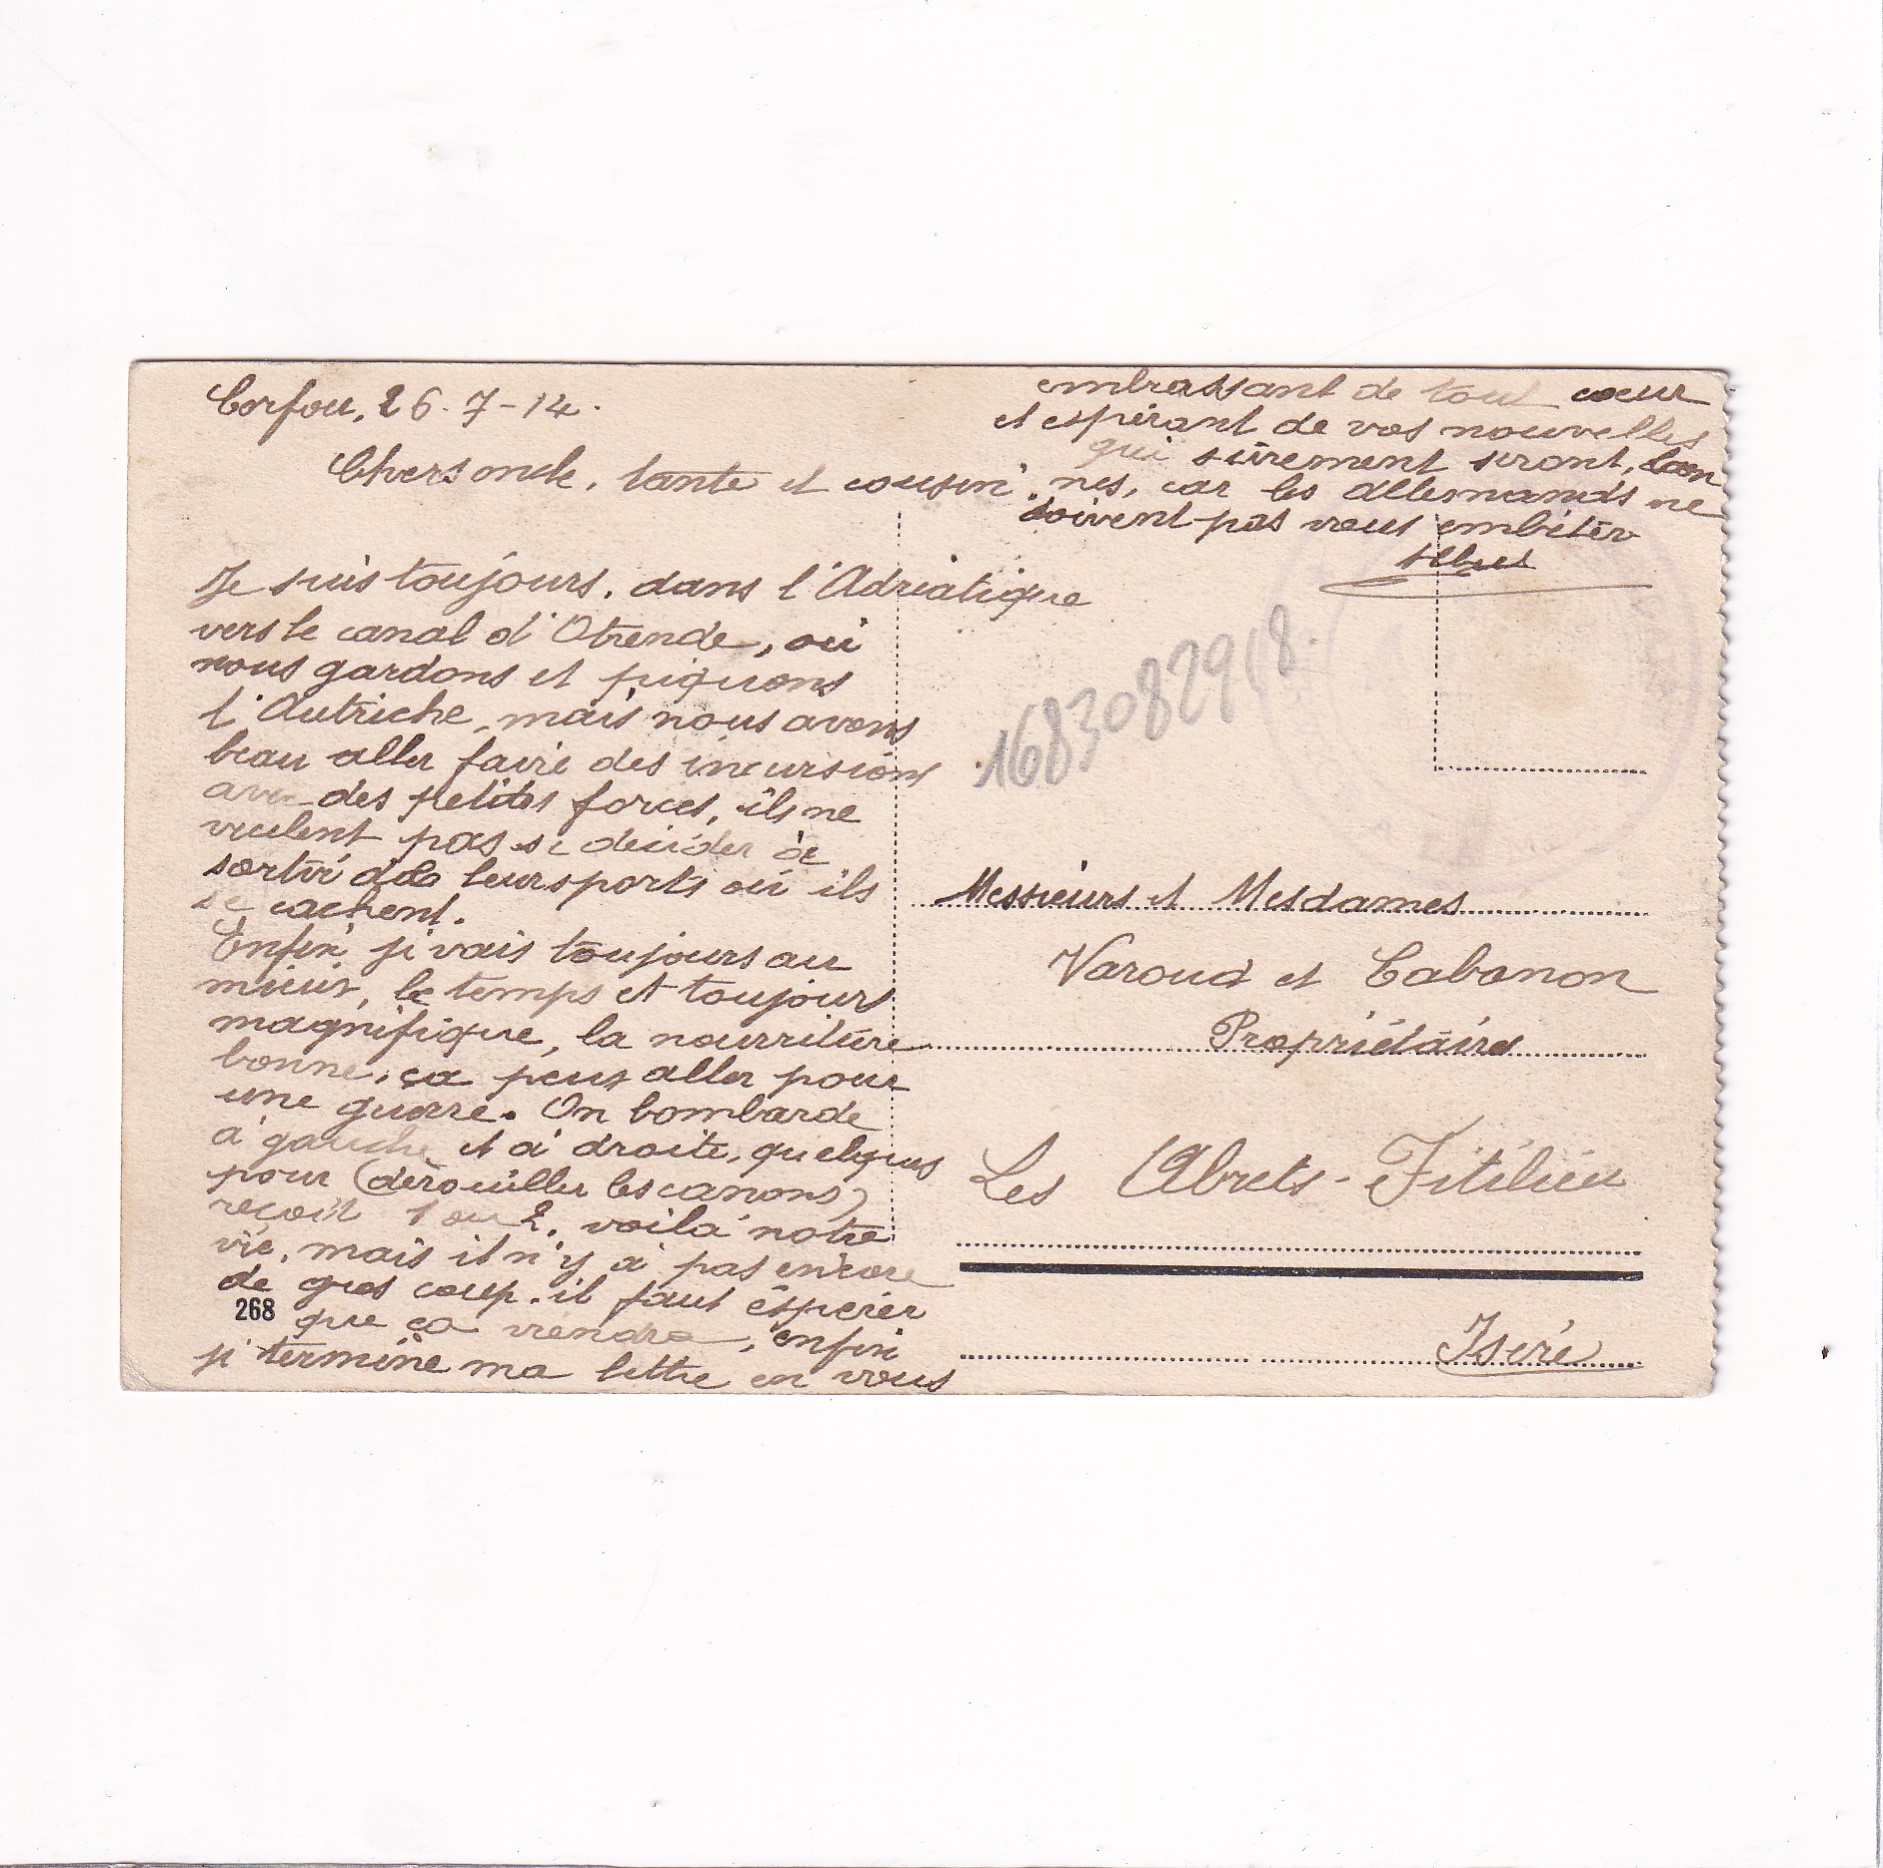 Corfou, 26-7-14.
Chers oncle, tante et cousin.
Je suis toujours, dans l'Adriatique
vers le canal d'Otrende, où
nous gardons et piquons
l'Autriche, mais nous avons
beau aller faire des incursions
avec des petites forces, ils ne
veulent pas se décider à
sortir de leurs ports où ils
se cachent.
Enfin, je vais toujours au
mieux, le temps et toujours
magnifique, la nourriture
bonne, ça peus aller pour
une guerre. On bombarde
à gauche et à droite, quelques
pour (dérouiller les canons)
reçoit 1 ou 2, voilà notre
vie, mais il n'y à pas encore
de gros coup. il faut éspérer
268
que ça viendra, enfin
je termine ma lettre en vous
embrassant de tout coeur
et espérant de vos nouvelles
qui sûrement seront, bon
nes, car les Allemands ne
doivent pas vous embêter
16830829918.
Messieurs et Mesdames
Varoud et Cabanon
Propriétaires
Les Abrets-Fitilieu
Isère